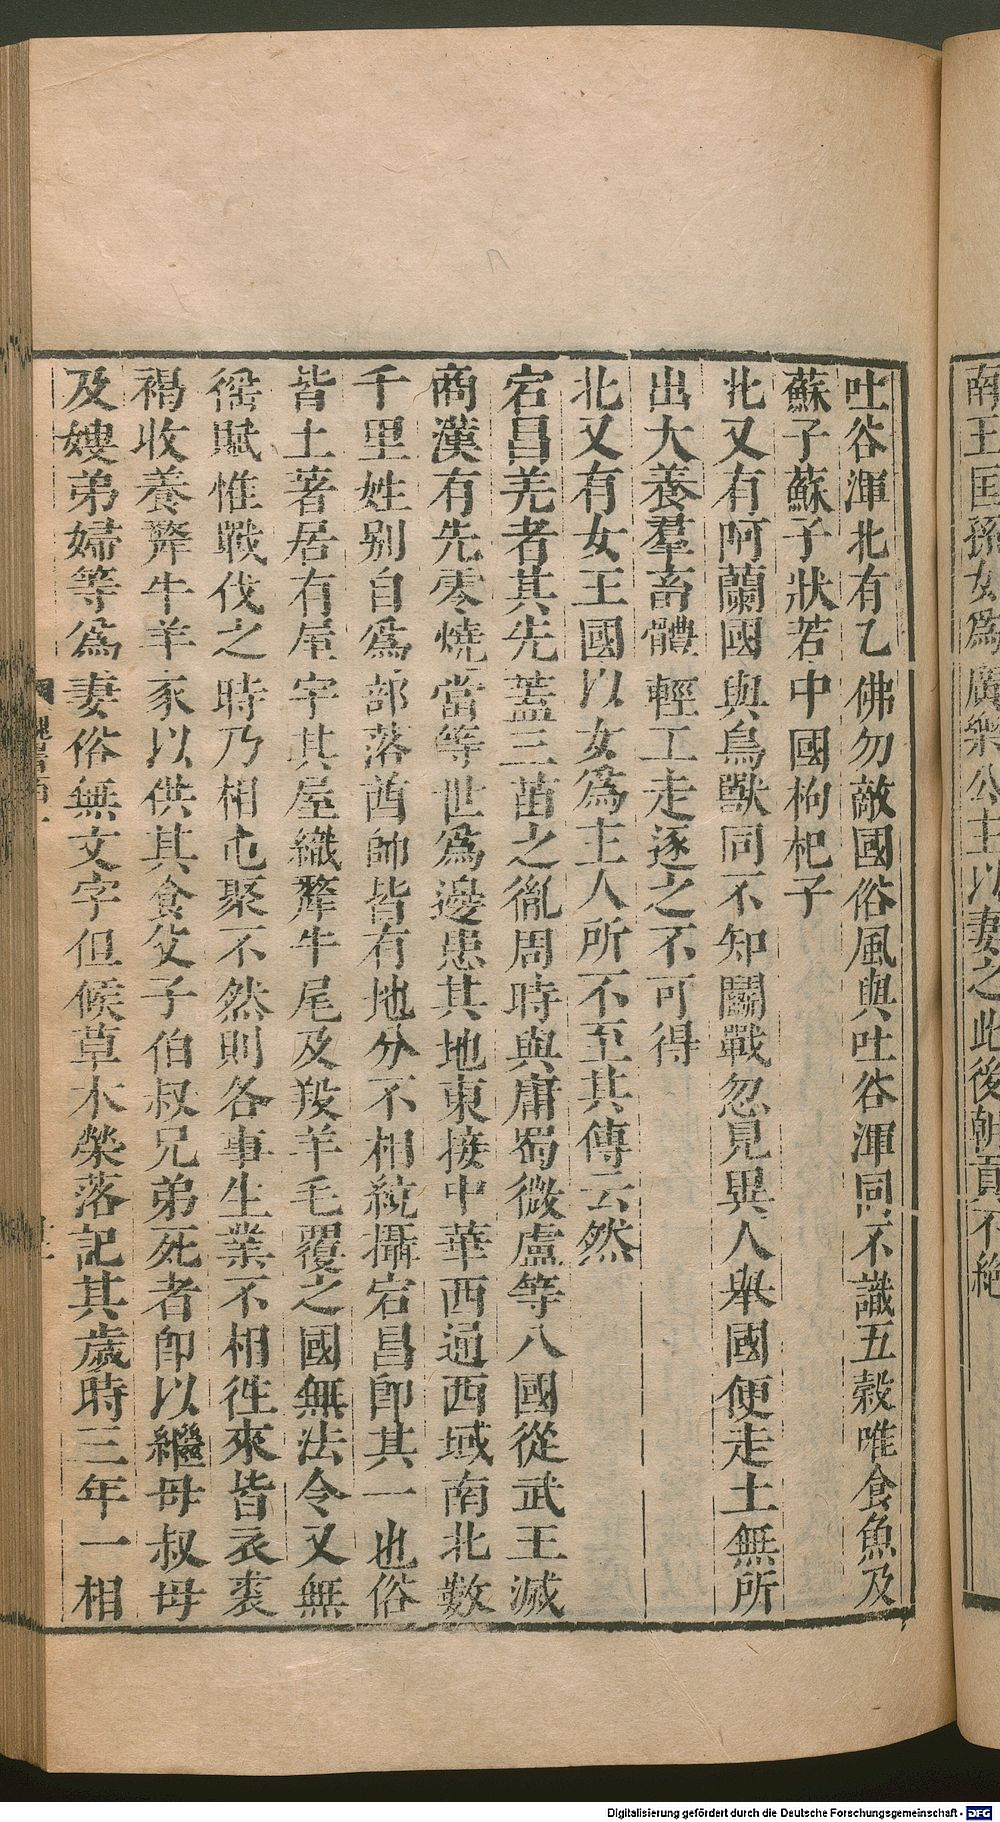 南王国孫女為廣樂公主以妻之此後朝貢不絶
吐谷渾北有乙佛勿敵國俗風與吐谷渾同不識五榖唯食魚及
蘇子蘇子狀若中國枸杞子
北又有阿蘭國與鳥獸同不知鬬戰忽見異人舉國便走土無所
出大養羣畜體輕工走逐之不可得
北又有女王國以女為主人所不至其傳云然
宕昌羌者其先蓋三苗之胤周時與庸蜀微盧等八國從武王滅
商漢有先零燒當等世為邊患其地東接中華西通西域南北數
千里姓别自為部落酋帥皆有地分不相統攝宕昌即其一也俗
皆土著居有屋宇其屋織犛牛尾及羖羊毛覆之國無法令又無
徭賦惟戰伐之時乃相屯聚不然則各事生業不相徃來皆衣裘
褐收養犛牛羊豕以供其食父子伯叔兄弟死者即以繼母叔母
及嫂弟婦等為妻俗無文字但候草木榮落記其歲時三年一相
Digitalisierung gefördert durch die Deutsche Forschungsgemeinschaft - DFG